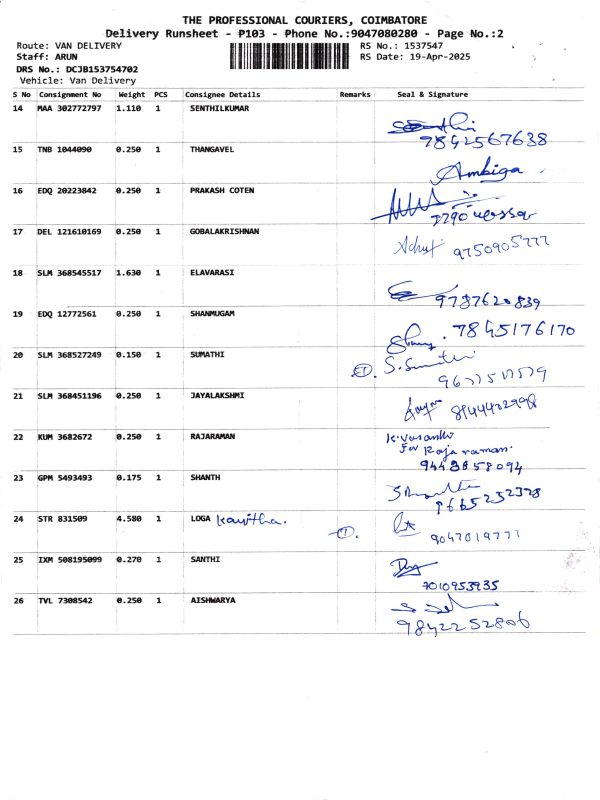 THE PROFESSIONAL COURIERS, COIMBATORE
Delivery Runsheet - P103 - Phone No.:9047080280 - Page No.:2
Route: VAN DELIVERY RS No.: 1537547
Staff: ARUN RS Date: 19-Apr-2025
DRS No.: DCJB153754702
Vehicle: Van Delivery
S No Consignment No Weight PCS Consignee Details Remarks Seal & Signature
14 MAA 302772797 1.110 1 SENTHILKUMAR
9842567638
15 TNB 1044090 0.250 1 THANGAVEL
Ambiga
16 EDQ 20223842 0.250 1 PRAKASH COTEN
17 DEL 121610169 0.250 1 GOBALAKRISHNAN
9750905777
18 SLM 368545517 1.630 1 ELAVARASI
9787620839
19 EDQ 12772561 0.250 1 SHANMUGAM
7845176170
20 SLM 368527249 0.150 1 SUMATHI
S. Sumathi
21 SLM 368451196 0.250 1 JAYALAKSHMI
22 KUM 3682672 0.250 1 RAJARAMAN
K. Vasantha
For Rajaraman.
23 GPM 5493493 0.175 1 SHANTH
24 STR 831509 4.580 1 LOGA Kavitha.
9047019777
25 IXM 508195099 0.270 1 SANTHI
7010953935
26 TVL 7308542 0.250 1 AISHWARYA
9842252806